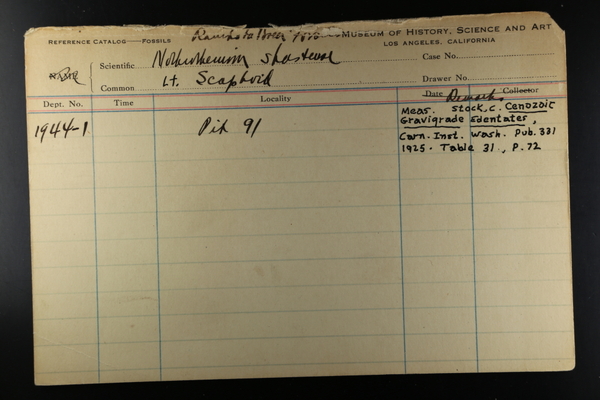 Rancho La Brea MUSEUM OF HISTORY, SCIENCE AND ART
REFERENCE CATALOG—FOSSILS LOS ANGELES, CALIFORNIA
Scientific Nothrotherium shastense Case No.
NAME
Common Lt. Scaphoid Drawer No.
Dept. No. Time Locality Date Remarks Collector
1944-1 Pit 91 Meas. Stock, C. Cenozoic
Gravigrade Edentates,
Carn. Inst. Wash. Pub. 331
1925. Table 31, P. 72